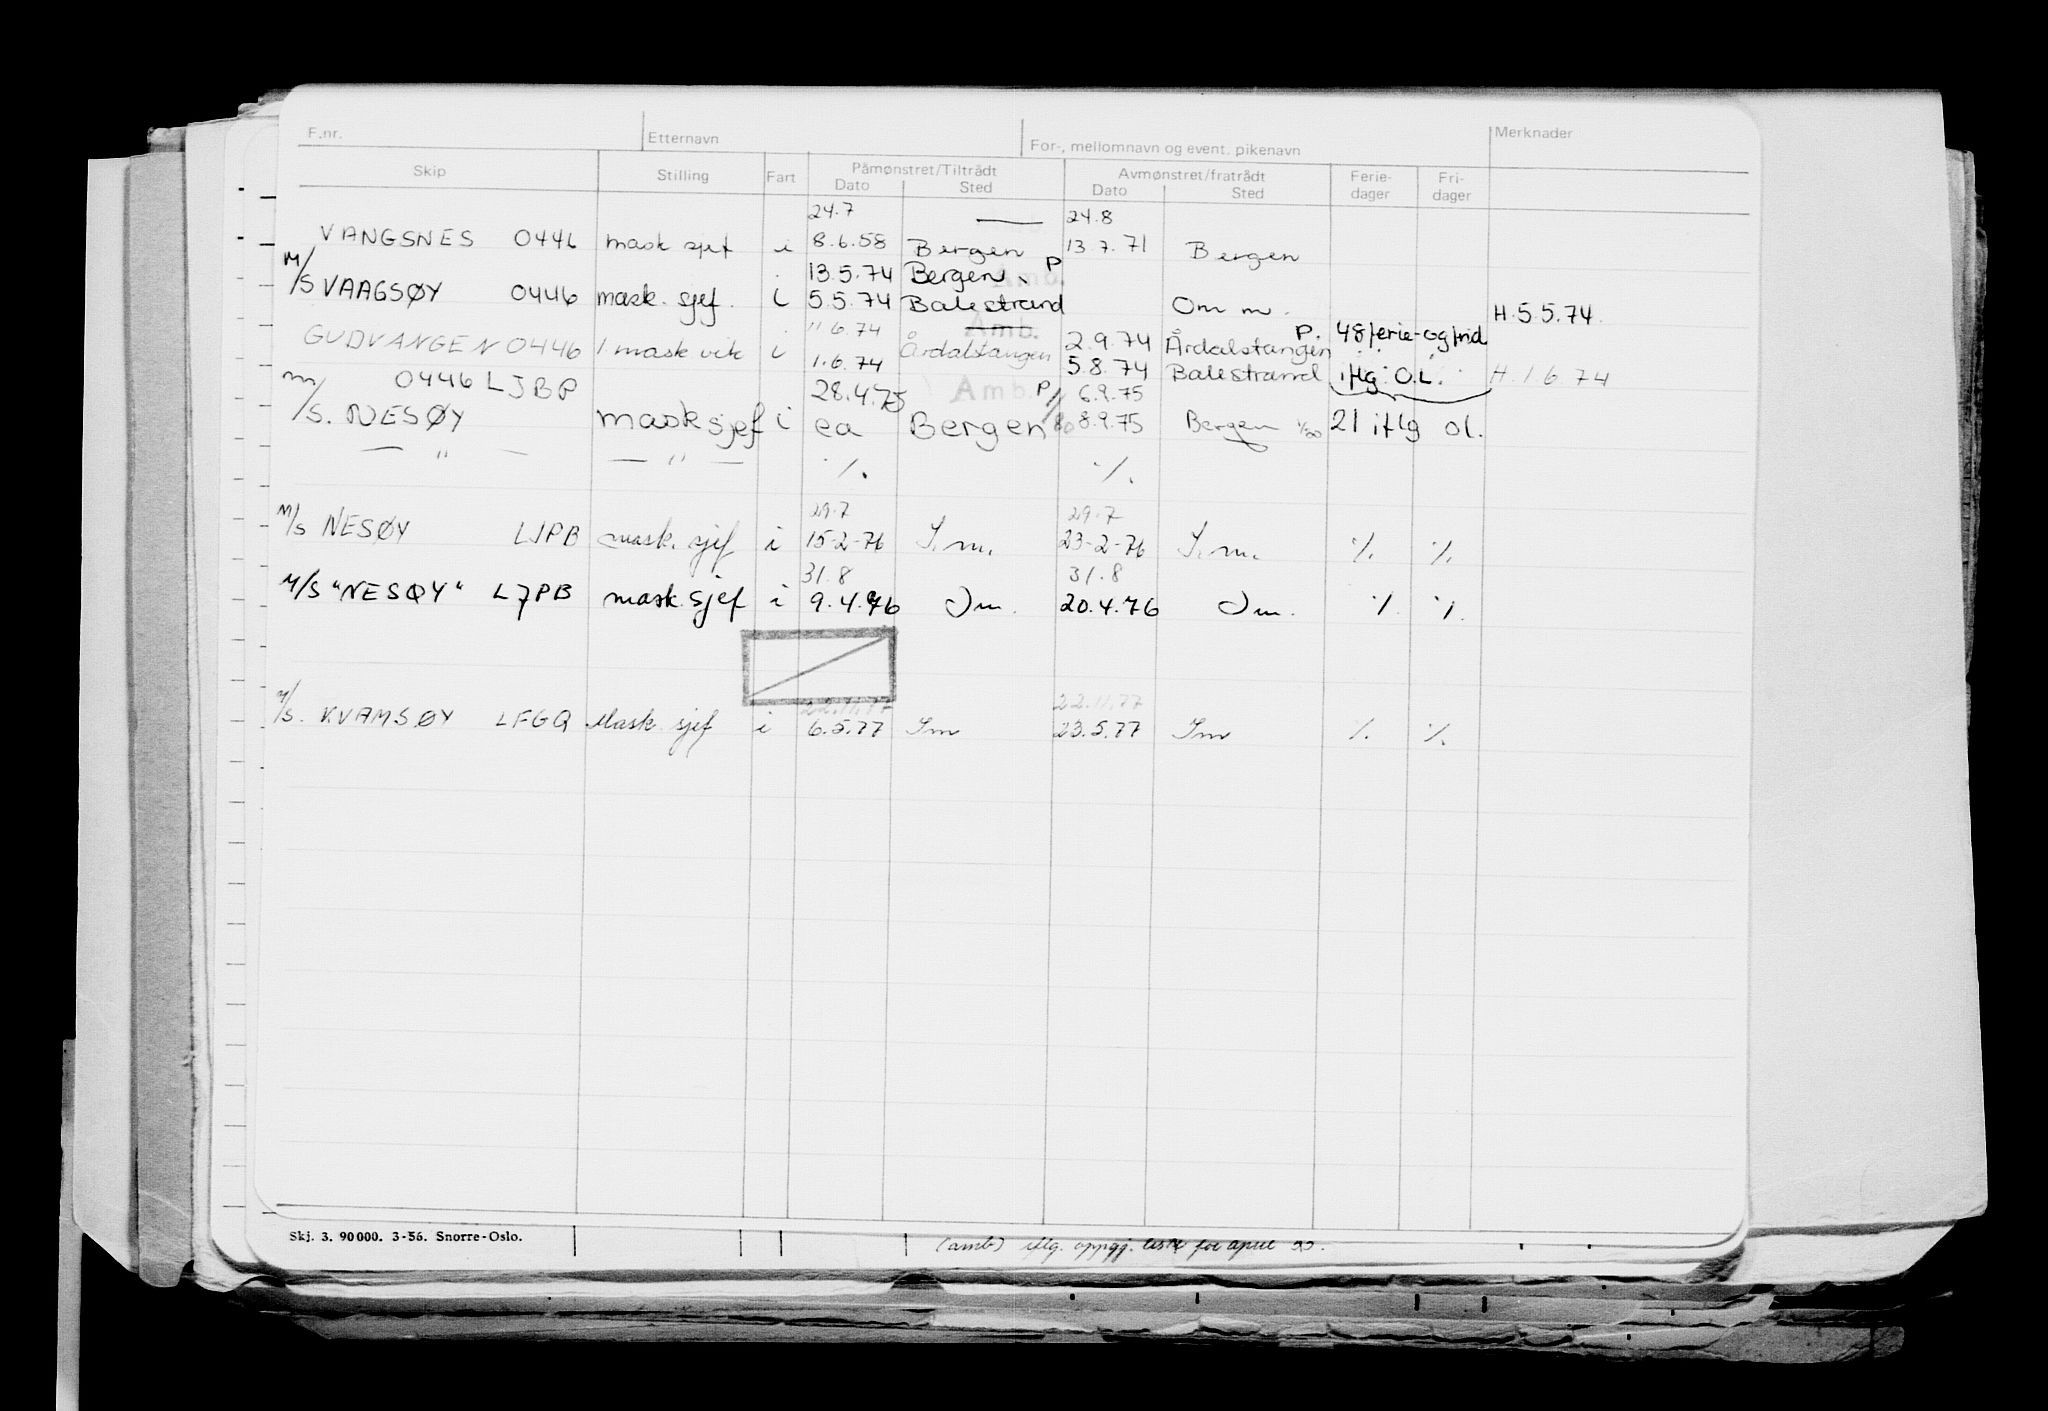 F.nr. Etternavn For-, mellomnavn og event. pikenavn Merknader
Skip Stilling Fart Påmønstret/Tiltrådt Avmønstret/fratrådt Ferie- Fri-
Dato Sted Dato Sted dager dager
24.7 — 24.8
VANGSNES 0446 mask sjef i 8.6.58 Bergen 13.7.71 Bergen
13.5.74 Bergen P
M/S VAAGSØY 0446 mask. sjef. i 5.5.74 Balestrand Om m. H.5.5.74.
11.6.74 Amb. P. 48 ferie- og frid
GUDVANGEN 0446 1 mask vik i Årdalstangen 2.9.74 Årdalstangen
1.6.74 5.8.74 Balestrand iflg. O.L. H.1.6.74
m/ 0446 LJBP 28.4.75 Amb. P 6.9.75
/S. NESØY mask sjef i ea Bergen 8.9.75 Bergen 1/20 21 iflg ol.
— " — — " — ./. ./.
29.7 29.7
M/S NESØY LJPB mask. sjef i 15-2-76 I.m. 23-2-76 I.m. ./. ./.
31.8 31.8
M/S "NESØY" LJPB mask. sjef i 9.4.76 Im. 20.4.76 Im. ./. ./.
22.11.77 22.11.77
M/S. KVAMSØY LFGQ Mask. sjef i 6.5.77 Im 23.5.77 Im ./. ./.
Skj. 3. 90000. 3-56. Snorre-Oslo.
(amb) iflg. oppgj. liste for april 55.